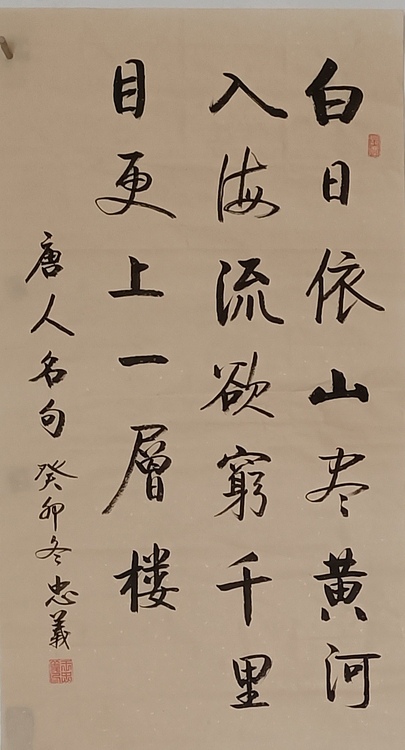 白日依山尽黄河
入海流欲窮千里
目更上一層楼
唐人名句癸卯冬忠義